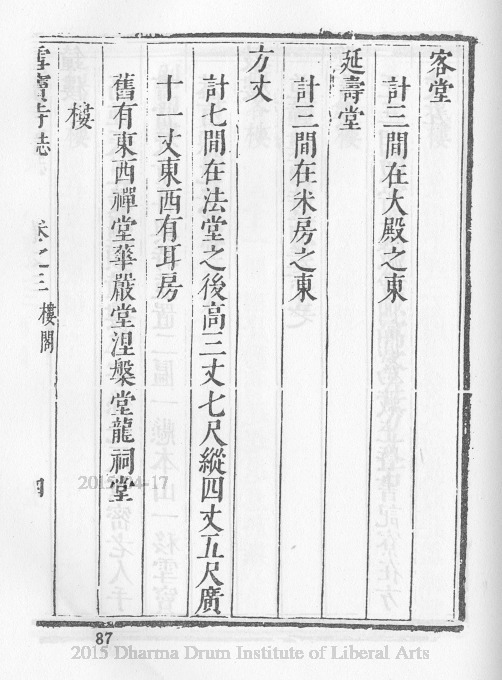 客堂
計三間在大殿之東
延壽堂
計三間在米房之東
方丈
計七間在法堂之後高三丈七尺縱四丈五尺廣
十一丈東西有耳房
舊有東西禪堂華嚴堂涅槃堂龍祠堂
樓
寶寺誌 卷之三 樓閣 四
87
2015 Dharma Drum Institute of Liberal Arts